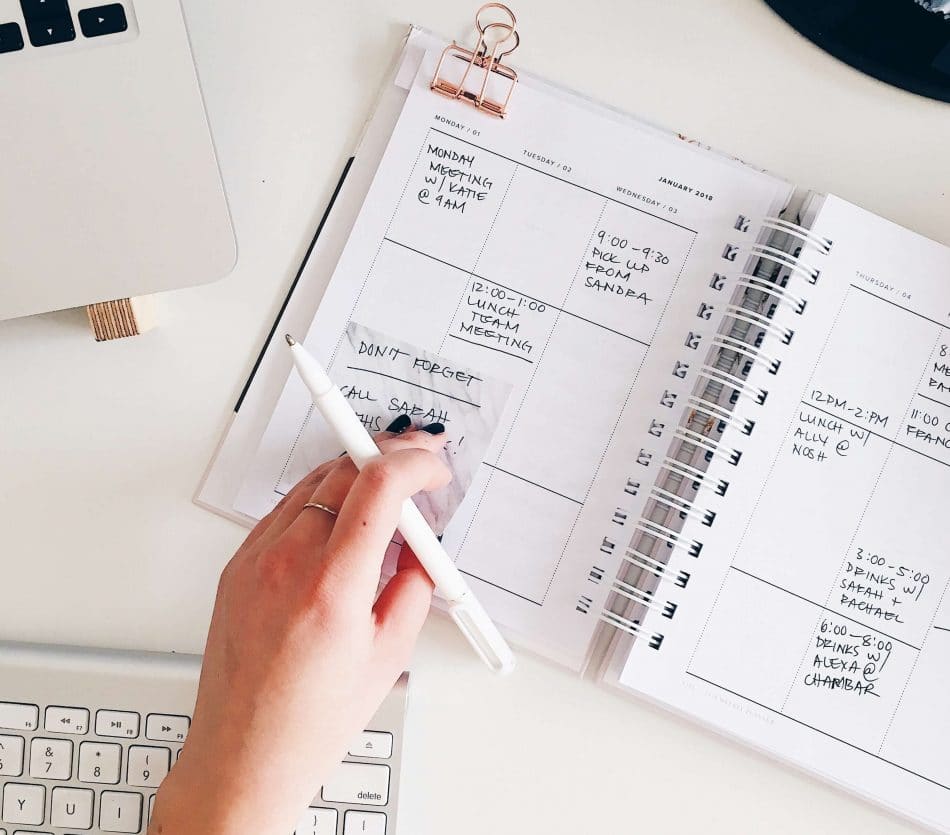 MONDAY / 01
MONDAY
MEETING
W/ KATIE
@ 9AM
TUESDAY / 02
12:00-1:00
LUNCH
TEAM
MEETING
JANUARY 2018
WEDNESDAY / 03
9:00-9:30
PICK UP
FROM
SANDRA
DON'T FORGET
CALL SARAH
THURSDAY / 04
12PM-2PM
LUNCH W/
ALLY @
NOSH
3:00-5:00
DRINKS W/
SARAH +
RACHAEL
6:00-8:00
DRINKS W/
ALEXA @
CHAMBAR
8
11:00
F6
F7
F8
&
7
*
8
(
9
Y
U
I
delete